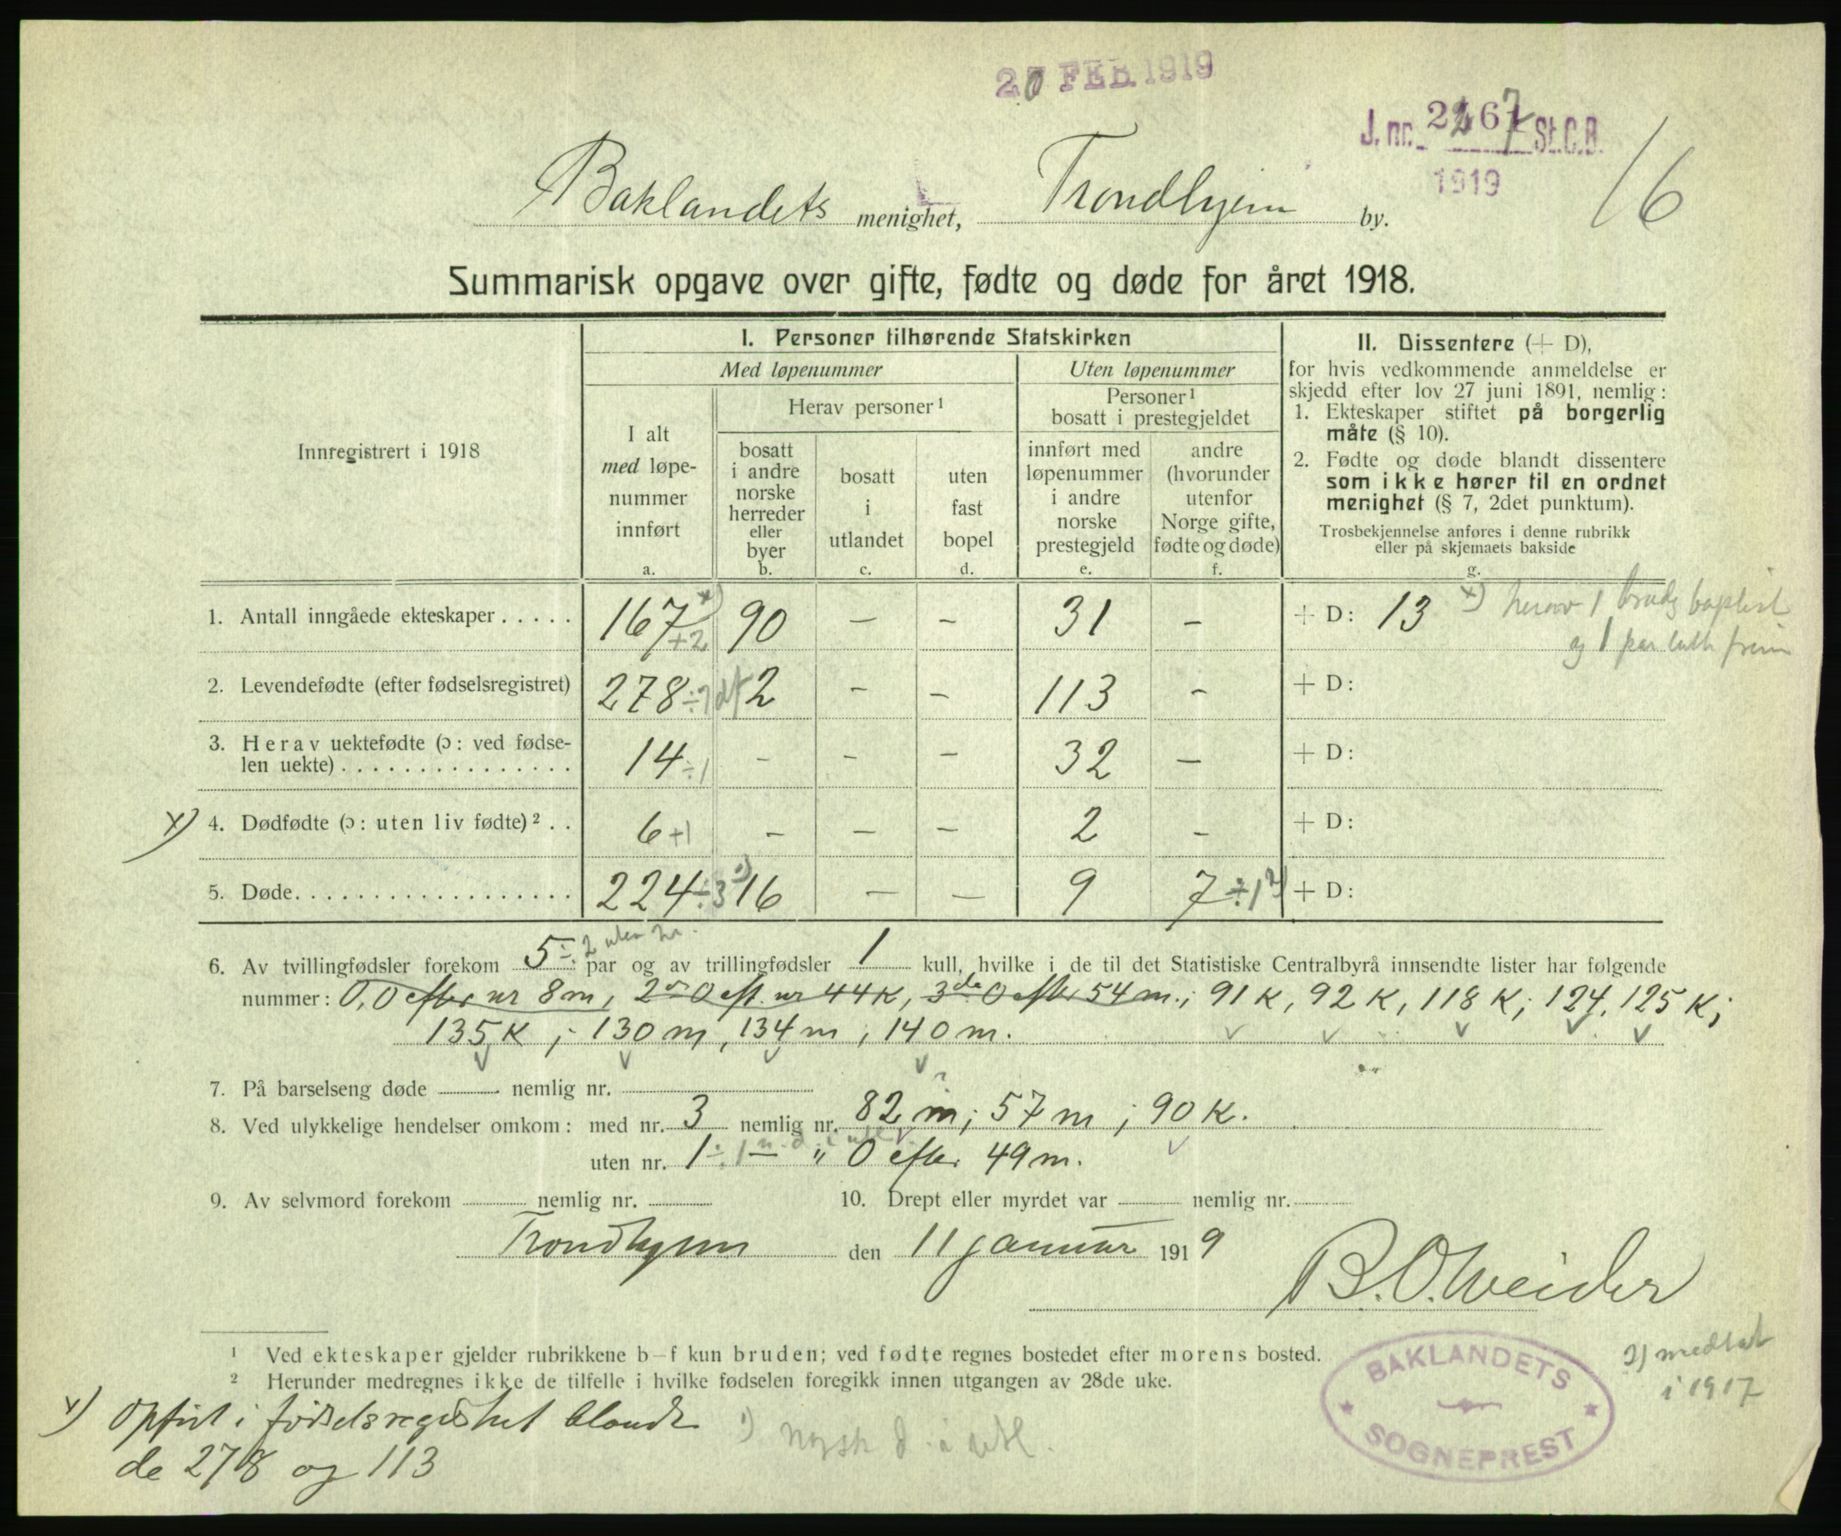 20 FEB. 1919
J. nr. 2267 St.C.B.
1919
16
Baklandets menighet, Trondhjem by.
Summarisk opgave over gifte, fødte og døde for året 1918.
Innregistrert i 1918
I. Personer tilhørende Statskirken
Med løpenummer
Uten løpenummer
Herav personer ¹
Personer ¹
bosatt i prestegjeldet
I alt
med løpe-
nummer
innført
a.
bosatt
i andre
norske
herreder
eller
byer
b.
bosatt
i
utlandet
c.
uten
fast
bopel
d.
innført med
løpenummer
i andre
norske
prestegjeld
e.
andre
(hvorunder
utenfor
Norge gifte,
fødte og døde)
f.
II. Dissentere (+ D),
for hvis vedkommende anmeldelse er
skjedd efter lov 27 juni 1891, nemlig:
1. Ekteskaper stiftet på borgerlig
måte (§ 10).
2. Fødte og døde blandt dissentere
som ikke hører til en ordnet
menighet (§ 7, 2det punktum).
Trosbekjennelse anføres i denne rubrikk
eller på skjemaets bakside
g.
1. Antall inngåede ekteskaper . . . . . 167 x) +2 90 – – 31 – + D: 13 x) herav 1 brudg baptist
og 1 par luth frim
2. Levendefødte (efter fødselsregistret) 278 ÷ 1 df 2 – – 113 – + D:
3. Herav uektefødte (ɔ: ved fødse-
len uekte) . . . . . . . . . . . . . . . 14 ÷1 – – – 32 – + D:
x) 4. Dødfødte (ɔ: uten liv fødte) ² . . 6 +1 – – – 2 – + D:
5. Døde. . . . . . . . . . . . . . . . . . 224 ÷3 ¹) 16 – – 9 7 ÷1 ²) + D:
6. Av tvillingfødsler forekom 5 ÷ 2 uten nr. par og av trillingfødsler 1 kull, hvilke i de til det Statistiske Centralbyrå innsendte lister har følgende
nummer: 0,0 efter nr 8 m, 2 0 eft. nr 44 K, 3 0 efter 54 m.; 91 K, 92 K, 118 K; 124, 125 K;
135 K ; 130 m, 134 m, 140 m.
7. På barselseng døde nemlig nr.
8. Ved ulykkelige hendelser omkom: med nr. 3 nemlig nr. 82 m; 57 m ; 90 K.
uten nr. 1 ÷ 1 n. d. i utl. " 0 efter 49 m.
9. Av selvmord forekom nemlig nr. 10. Drept eller myrdet var nemlig nr.
Trondhjem den 11 januar 1919
B. O. Weider
¹ Ved ekteskaper gjelder rubrikkene b–f kun bruden; ved fødte regnes bostedet efter morens bosted.
² Herunder medregnes ikke de tilfelle i hvilke fødselen foregikk innen utgangen av 28de uke.
BAKLANDETS
SOGNEPREST
2) medtat
i 1917
x) Opført i fødselsregistret blandt
de 278 og 113
¹) norsk d. i utl.